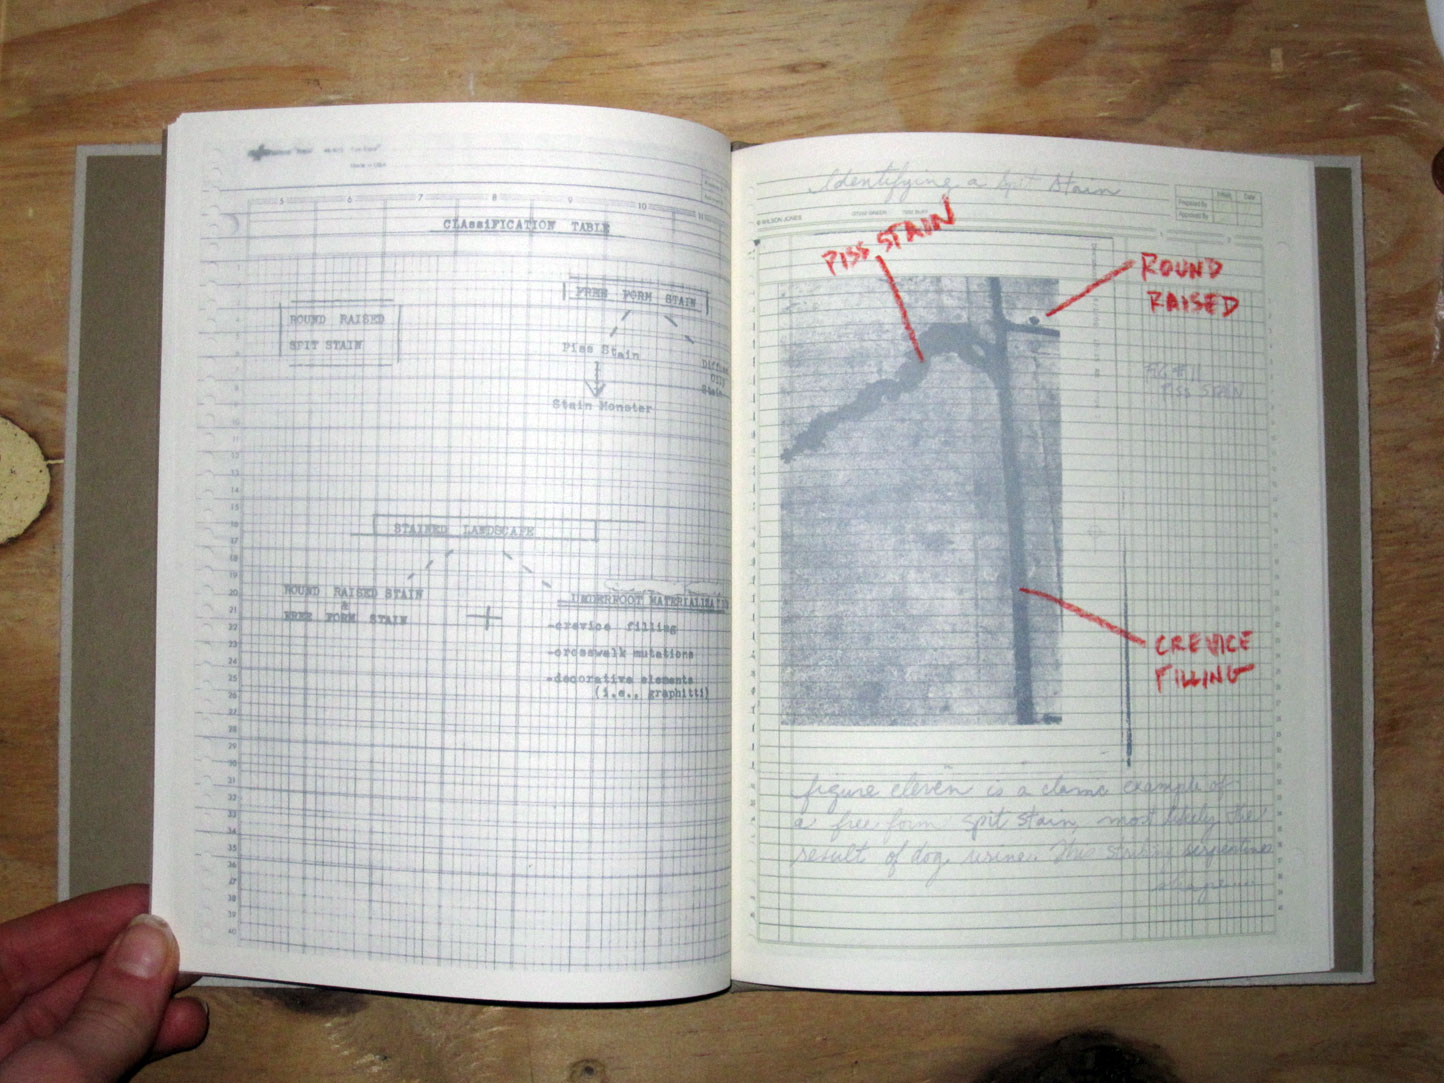 5 6 7 8 9 10
CLAssiFICATION TABLE
FREE FORM STAIN
ROUND RAISED
SPIT STAIN
Piss Stain
Stain Monster
STAINED LANDSCAPE
ROUND RAISED STAIN
&
FREE FORM STAIN
+
UNDERFOOT
-crevice filling
-crosswalk mutations
-decorative elements
(i.e., graphitti)
Identifying a Spit Stain
WILSON JONES
Prepared By
Approved By
Date
PISS STAIN
ROUND
RAISED
FIG # 11
PISS STAIN
CREVICE
FILLING
figure eleven is a classic example of
a free form spit stain, most likely the
result of dog urine. This serpentine
shape